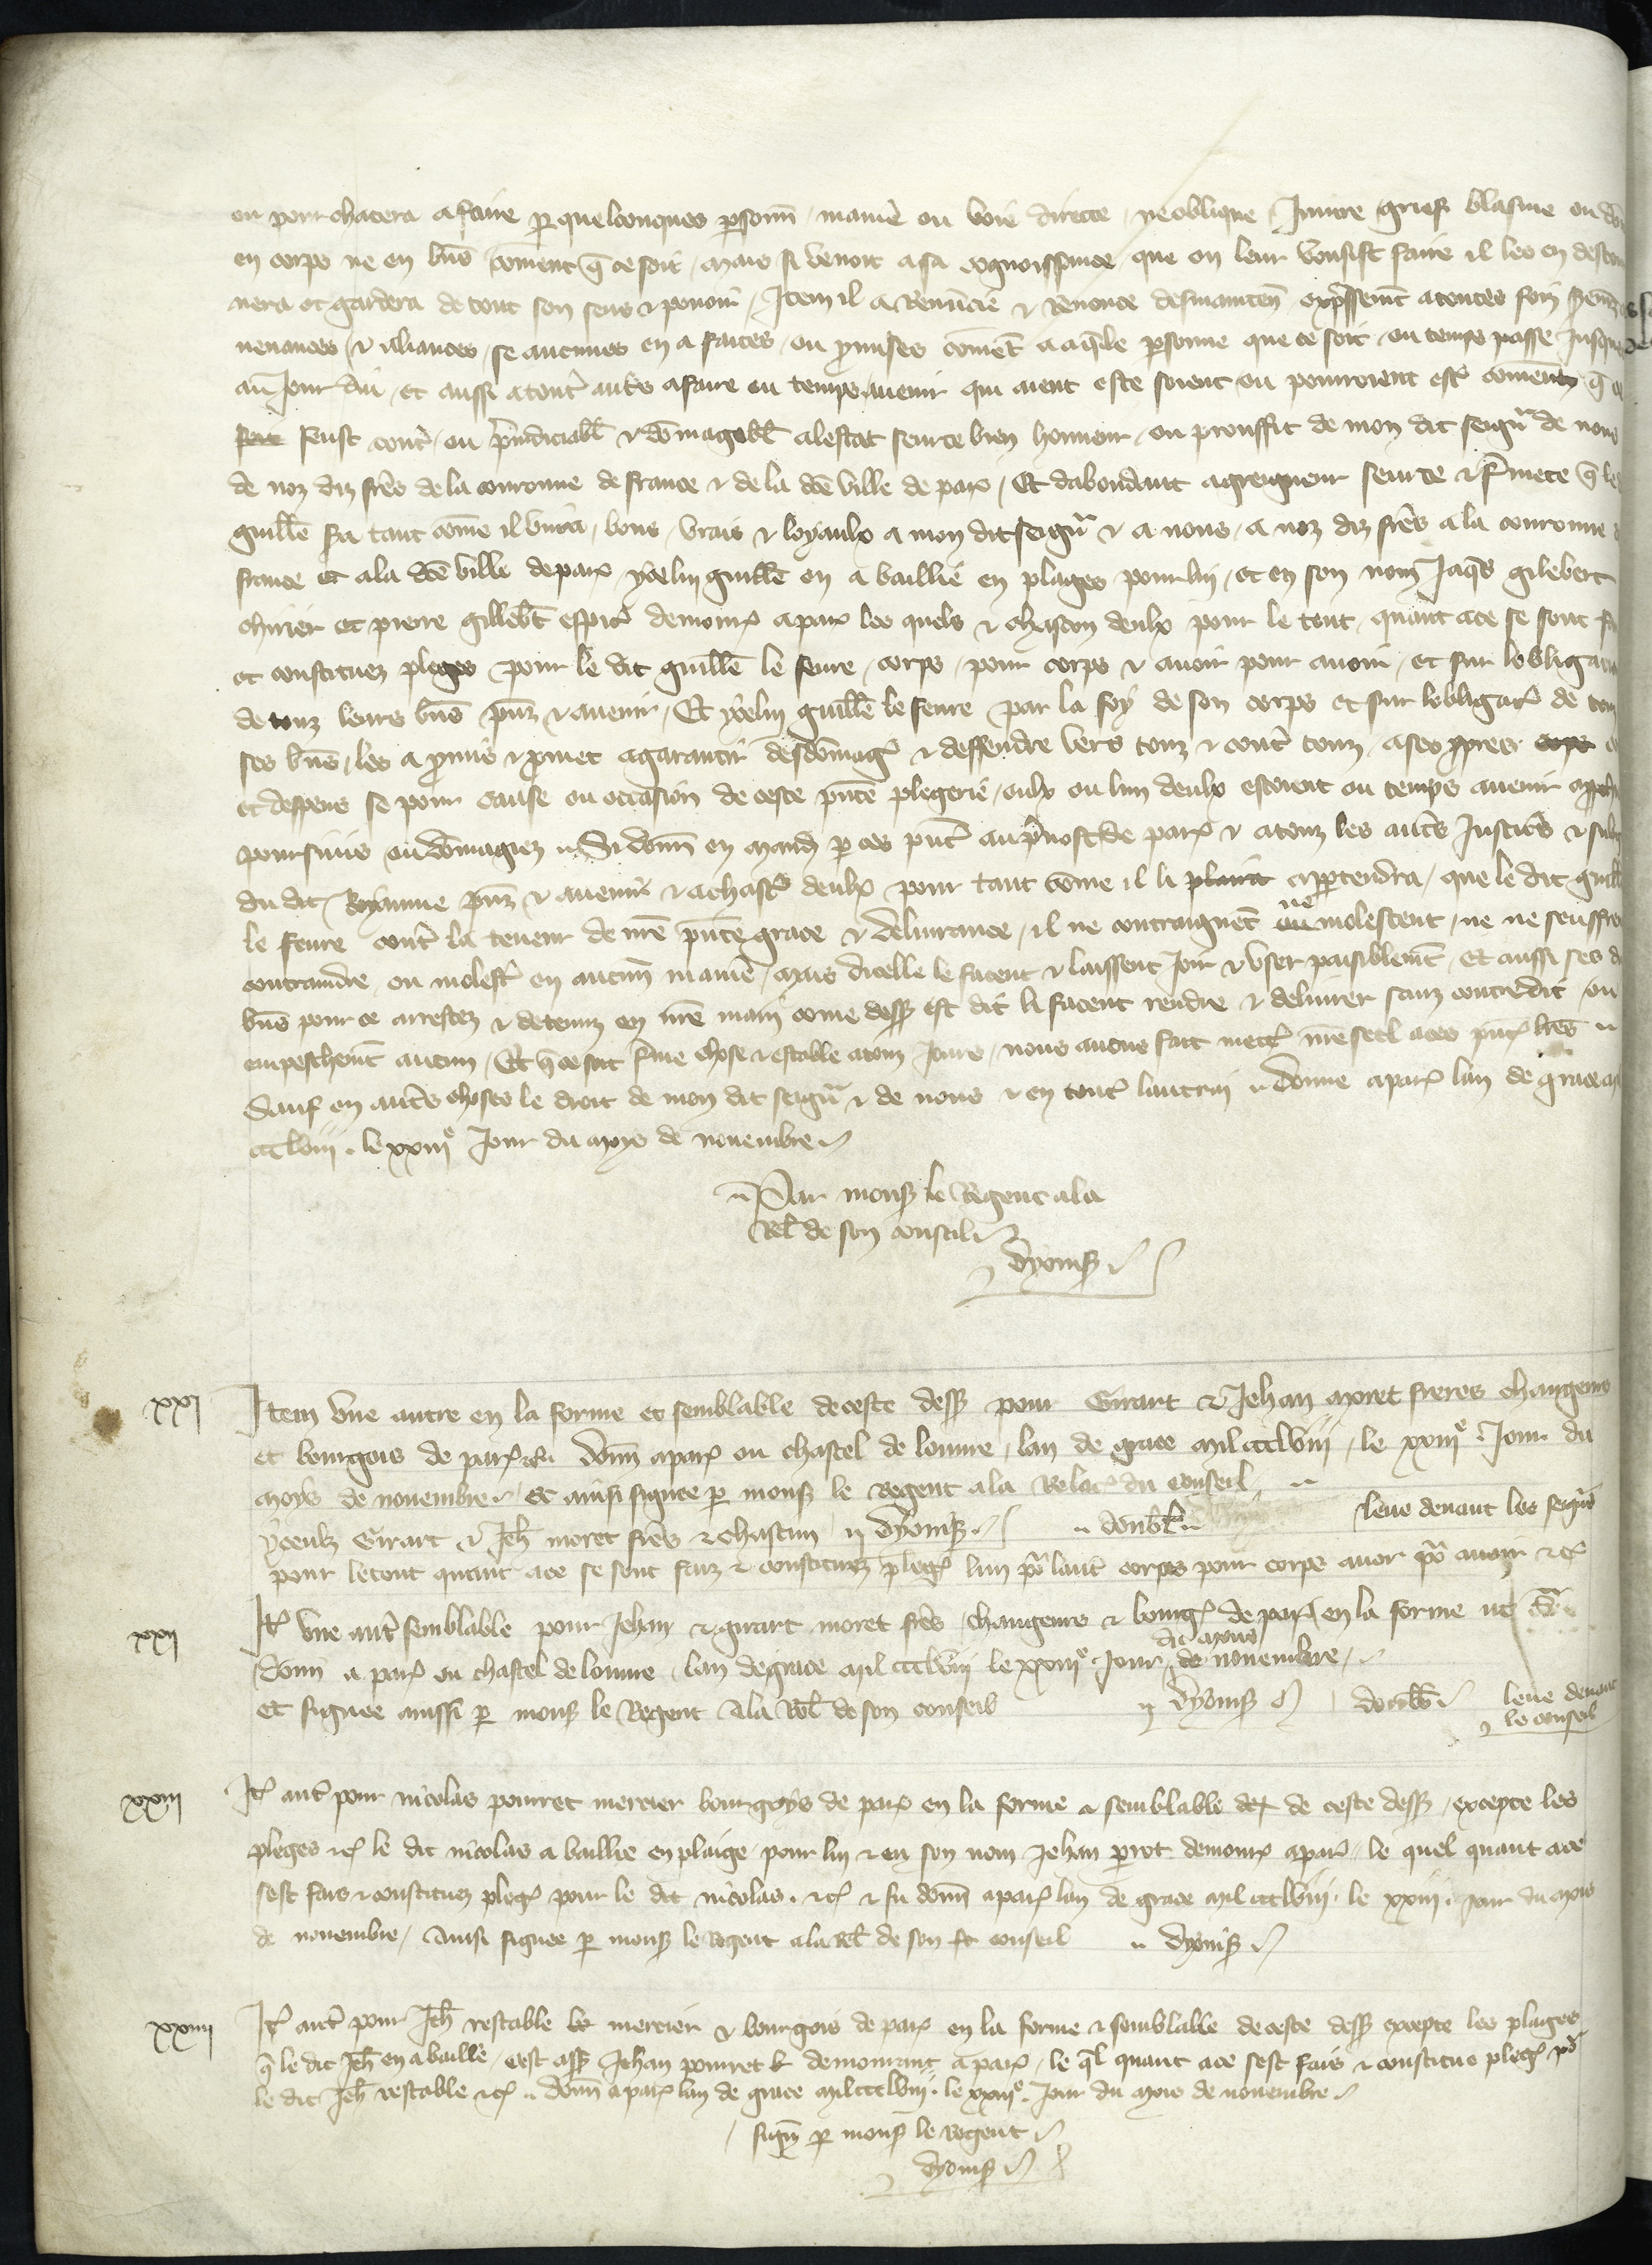 ou pourchacera a faire p quelconques psonn maniē ou voie directe ne oblique Iniure grief blasme ou do
en corps ne en bn̄s comment q̄ ce soit mais si venoit a sa cognoissance que on leur vousist faire il les en destou
nera et gardera de tout son sens & pouoir Item il a Renuncie & Renonce desmainten̄ expressem̄t a toutes foiz
uenances & aliances se aucunes en a faites ou pmises com̄ēt a aq̄le psonne que ce soit ou temps passe Iusques
au Iour dui et aussi a tout̄ aut̄s a faire ou temps auenir qui aient este soient ou pourroient est̄ comment q̄ ce
feust cont̄ ou p̄iudiciabl̄ & dōmagabl̄ a lestat seurte bien honneur ou prouffit de mon dit seign̄ de nous
de noz diz fr̄es de la couronne de france & de la dc̄e ville de par̄ Et dabondant a greigneur seurte & f̄mete q̄ le
guill̄e s̄a tant cōme il viura bons vrais & loyaulx a mon dit seign̄ & a nous a noz diz fr̄es a la couronne
france et a la dc̄e ville de par̄ ycelui guill̄e en a baillié en plaiges pour lui et en son nom Iaq̄s gilebert
et pierre gillēbt espic̄ demour̄ a par̄ les quels & chascon deulx pour le tout quant a ce se sont fa
et constituez pleges pour le dit guill̄e le feure corps pour corps & auoir pour auoir et sur lobligacion
de touz leurs bn̄s pn̄z & auenir Et ycelui guill̄e le feure par la foy de son corps et sur lobligac̄ de touz
ses bn̄s les a pmis & pmet a garantir desdōmaḡ & deffendre vers touz & cont̄ touz a ses ppres
et despens se pour cause ou occasion de ceste pn̄te plegerie eulx ou lun deulx estoient ou temps auenir
poursuis ou dōmagiez Si donn̄ en mand̄ p ces pn̄t̄ au p̄uost de par̄ & a touz les aut̄s Iustic̄s & sub
du dit Royaume pn̄z & auenir & a chasc̄ deulx pour tant cōme il li plaira appartendra que le dit guill̄
le feure cont̄ la teneur de nr̄e pn̄te grace & deliurance il ne contraignēt ou ne molestent ne ne seuffre
contraindre ou molest̄ en aucun̄ maniē mais dicelle le facent & laissent Ioir & vser paisiblem̄t et aussi ses d
bn̄s pour ce arrestez & detenuz en nr̄e main cōme dess̄ est dit li facent rendre & deliurer sanz contredit ou
empeschem̄t aucun Et q̄ ce soit f̄me chose & estable a touz Iours nous auons fait mett̄ nr̄e seel a ces pn̄t̄ l̄r̄es
Sauf en aut̄s choses le droit de mon dit seign̄ & de nous & en tout̄ lautrui donne a par̄ lan de grace m
ccclviij le xxiije Iour du moys de nouembre
Par mons̄ le Regent a la
Rel̄ de son conseil
Dyonis̄
xxj
Item vne autre en la forme et semblable de ceste dess̄ pour Girart & Iehan moret freres changeurs
et bourgois de par̄ donn̄ a par̄ ou chastel de louure lan de grace mil ccclviij le xxiije Iour du
moys de nouembre Et ainsi signee p mons̄ le Regent a la Relac̄ du conseil
yceulz Girart & Ieh̄ moret fr̄es & chascun Dyonis̄ doubl̄ leue deuant les seign̄s
pour le tout quant a ce se sont faiz & constituez pleḡ lun po̧ laut̄ corps pour corps auoir po̧ auoir &c̄
xxij
It̄ vne aut̄ semblable pour Iehan & girart moret fr̄es changeurs & bourḡ de par̄ en la forme
donn̄ a par̄ ou chastel de louure lan de grace mil ccclviij le xxiije Iour du moys de nouembre
et signee aussi p mons̄ le Regent a la Rel̄ de son conseil Dyonis̄ doubl̄ leue deuant
le conseil
xxiij
It̄ aut̄ pour nicolas pouuret mercier bourgoys de par̄ en la forme & semblable de ceste dess̄ excepte les
pleges &c̄ le dit nicolas a baillie en plaige pour lui & en son nom Iehan perrot demour̄ a par̄ le quel quant a ce
sest fais & constituez pleḡ pour le dit nicolas &c̄ & fu donn̄ a par̄ lan de grace mil ccclviij le xxiij Iour du mois
de nouembre Ainsi signee p mons̄ le regent a la rel̄ de son conseil Dyonis̄
xxiiij
It̄ aut̄ pour Ieh̄ restable mercier & bourgois de par̄ en la forme & semblable de ceste dess̄ excepte les plaiges
q̄ le dit Ieh̄ en a baillé cest ass̄ Iehan pouuret demourant a par̄ le q̄l quant a ce sest fais & constitue pleḡ po̧
le dit Ieh̄ restable &c̄ donn̄ a par̄ lan de grace mil ccclviij le xxiije Iour du mois de nouembre
sign̄ p mons̄ le regent
Dyonis̄